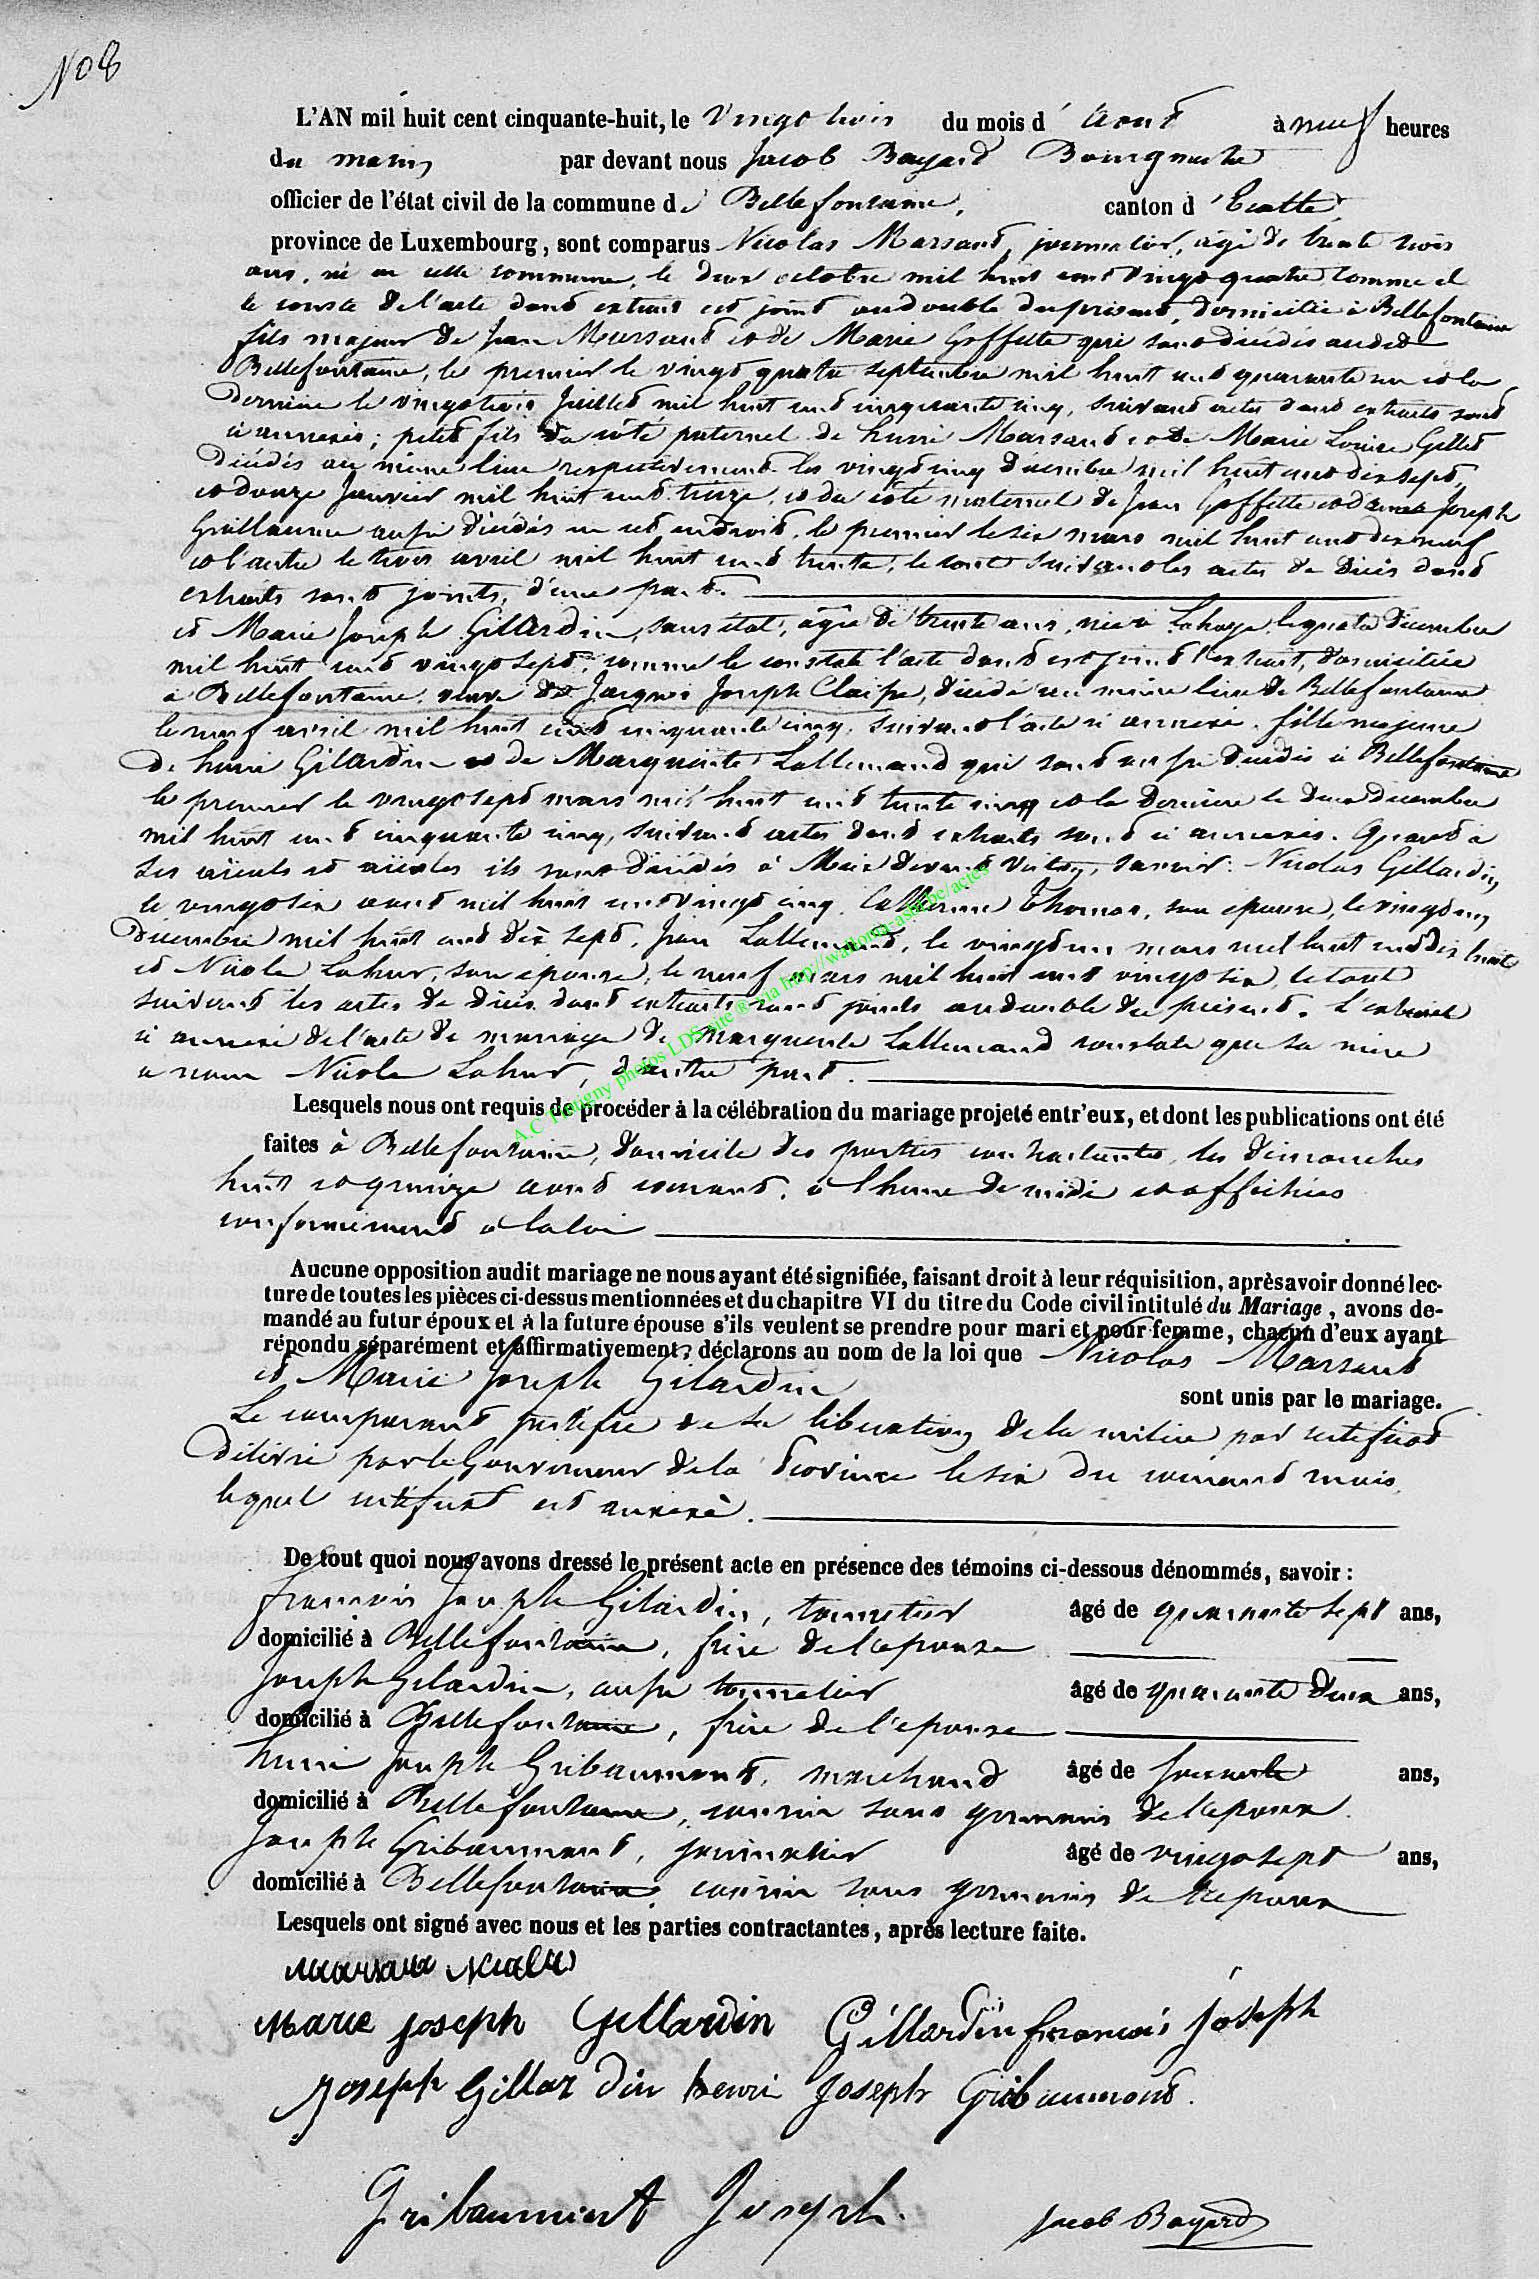 No 8
L'AN mil huit cent cinquante-huit, le Vingt trois du mois d' Aout à neuf heures
du matin par devant nous Jacob Bayard Bourgmestre
officier de l'état civil de la commune de Bellefontaine, canton d' Etalle,
province de Luxembourg, sont comparus Nicolas Marsaud, journalier, âgé de trente trois
ans, né en cette commune, le deux octobre mil huit cent vingt quatre comme il
le conste de l'acte dont extrait est joint au double du présent, domicilié à Bellefontaine
fils majeur de Jean Marsaud et de Marie Goffette qui sont décédés audit
Bellefontaine, le premier le vingt quatre septembre mil huit cent quarante un et la
dernière le vingt trois Juillet mil huit cent cinquante cinq, suivant actes dont extraits sont
ci annexés; petit fils du côté paternel de henri Marsaud et de Marie Louise Gillet
décédés au même lieu respectivement les vingt cinq décembre mil huit cent dix sept,
et douze Janvier mil huit cent treize, et du côté maternel de Jean Goffette et d' Joseph
Guillaume aussi décédés en cet endroit, le premier le six mars mil huit cent dix neuf
et l'autre le trois avril mil huit cent trente, le tout suivant les actes de décès dont
extraits sont joints, d'une part.
et Marie Joseph Gillardin, sans état, âgée de trente ans, née à Lahage le quatre décembre
mil huit cent vingt sept, comme le constate l'acte dont est joint l'extrait, domiciliée
à Bellefontaine, veuve de Jacques Joseph Claisse, décédé au même lieu de Bellefontaine
le neuf avril mil huit cent cinquante cinq, suivant l'acte ci annexé, fille majeure
de henri Gillardin et de Marguerite Lallemand qui sont aussi décédés à Bellefontaine
le premier le vingt sept mars mil huit cent trente cinq et la dernière le deux décembre
mil huit cent cinquante cinq, suivant actes dont extraits sont ci annexés. Quant à
ses aïeuls et aïeules ils sont décédés à Meix devant Virton, savoir: Nicolas Gillardin
le vingt six aout mil huit cent vingt cinq, Catherine Thomas, son épouse, le vingt
décembre mil huit cent dix sept, Jean Lallemand, le vingt un mars mil huit cent dix huit
et Nicole Lahur, son épouse, le neuf mars mil huit cent vingt six, le tout
suivant les actes de décès dont extraits sont joints au double du présent. L'extrait
ci annexé de l'acte de mariage de Marguerite Lallemand constate que sa mère
a nom Nicole Lahur, d'autre part.
A.C Tintigny photos LDS site ® via http://wallonia-asbl.be/actes
Lesquels nous ont requis de procéder à la célébration du mariage projeté entr'eux, et dont les publications ont été
faites à Bellefontaine, domicile des parties contractantes, les dimanches
huit et quinze aout courant, à l'heure de midi et affichées
conformément à la loi
Aucune opposition audit mariage ne nous ayant été signifiée, faisant droit à leur réquisition, après avoir donné lec-
ture de toutes les pièces ci-dessus mentionnées et du chapitre VI du titre du Code civil intitulé du Mariage, avons de-
mandé au futur époux et à la future épouse s'ils veulent se prendre pour mari et pour femme, chacun d'eux ayant
répondu séparément et affirmativement, déclarons au nom de la loi que Nicolas Marsaud
et Marie Joseph Gilardin sont unis par le mariage.
Le comparant justifie de sa libération de la milice par certificat
délivré par le Gouverneur de la Province le six du courant mois,
lequel certificat est annexé.
De tout quoi nous avons dressé le présent acte en présence des témoins ci-dessous dénommés, savoir :
francois Joseph Gilardin, tonnelier âgé de quarante sept ans,
domicilié à Bellefontaine, frère de l'épouse
Joseph Gilardin, aussi tonnelier âgé de quarante deux ans,
domicilié à Bellefontaine, frère de l'épouse
henri Joseph Gribaumont, marchand âgé de soixante ans,
domicilié à Bellefontaine, cousin sous germain de l'époux
Joseph Gribaumont, journalier âgé de vingt sept ans,
domicilié à Bellefontaine, cousin sous germain de l'époux
Lesquels ont signé avec nous et les parties contractantes, après lecture faite.
Marsaud Nicolas
Marie joseph Gillardin Gillardin francois joseph
joseph Gillardin henri joseph Gribaumont.
Gribaumont Joseph. Jacob Bayard